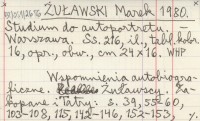 ŻUŁAWSKI Marek 1980.
Studium do autoportretu.
Warszawa. Ss. 216, il., tabl. kolor.
16, opr., obw., cm 24 x 16. WHP
Wspomnienia autobiogra-
ficzne. Żuławscy. Za-
kopane i Tatry: s. 39, 55-60,
103-108, 115, 142-146, 152-153,